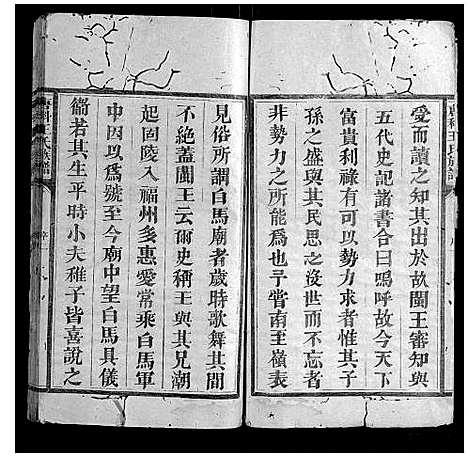 愛而讀之知其出於故閩王審知與
五代史記諸書合曰嗚呼故今天下
富貴利祿有可以勢力求者惟其子
孫之盛與其民思之沒世而不忘者
非勢力之所能為也予嘗南至嶺表
見俗所謂白馬廟者歲時歌舞其間
不絕蓋閩王云爾史稱王與其兄潮
起固陵入福州多惠愛常乘白馬軍
中因以為號至今廟中望白馬具儀
觴若其生平時小夫稚子皆喜說之
唐科王氏族譜